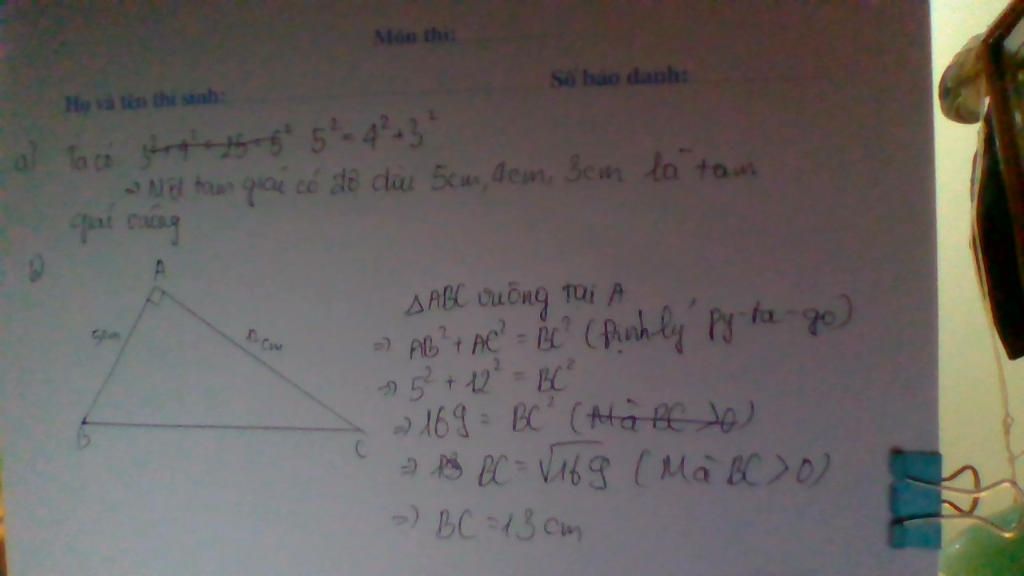 Môn thi:
Số báo danh:
Họ và tên thí sinh:
a) Ta có 3² + 4² = 25 = 5² 5² = 4² + 3²
=> Một tam giác có độ dài 5cm, 4cm, 3cm là tam
giác vuông
b)
A
5cm
12cm
B
C
△ABC vuông tại A
=> AB² + AC² = BC² (Định lý py-ta-go)
=> 5² + 12² = BC²
=> 169 = BC² (Mà BC > 0)
=> BC = √169 (Mà BC > 0)
=> BC = 13 cm